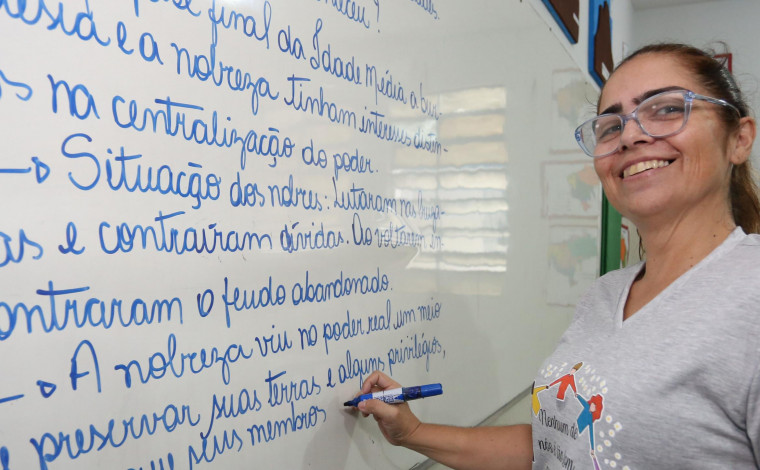 final da Idade Média a bur-
esia e a nobreza tinham interesses distin-
os na centralização do poder.
→ Situação dos nobres: Lutaram nas Cruza-
as e contraíram dívidas. Ao voltarem, en-
ontraram o feudo abandonado.
→ A nobreza viu no poder real um meio
e preservar suas terras e alguns privilégios,
que seus membros
Nenhum de
nós é